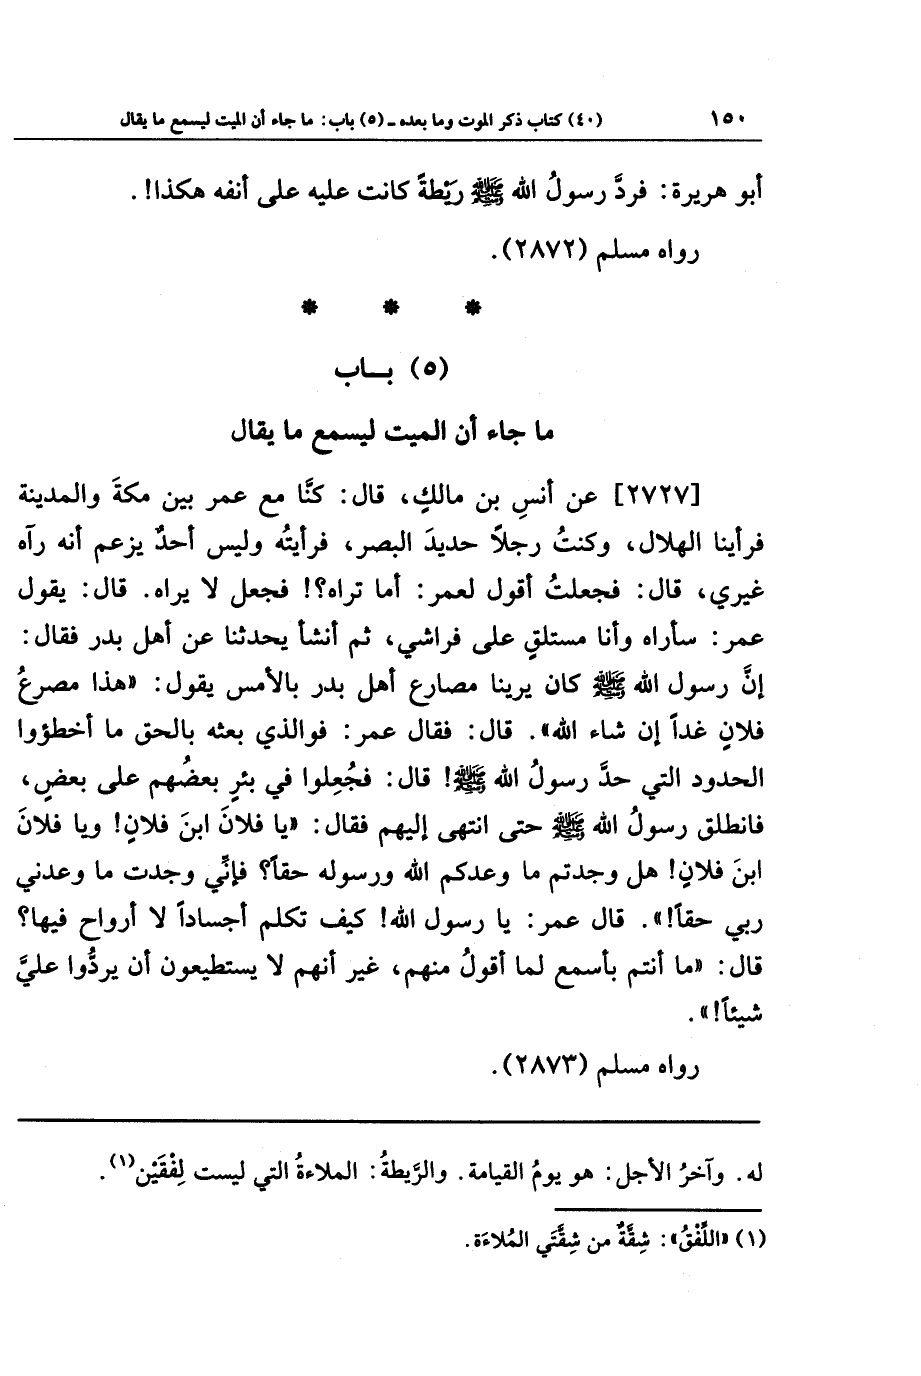 ١٥٠ (٤٠) كتاب ذكر الموت وما بعده ـ (٥) باب: ما جاء أن الميت ليسمع ما يقال
أبو هريرة: فردَّ رسولُ الله ﷺ رَيْطةً كانت عليه على أنفه هكذا!.
رواه مسلم (٢٨٧٢).
* * *
(٥) بــاب
ما جاء أن الميت ليسمع ما يقال
[٢٧٢٧] عن أنسِ بن مالكٍ، قال: كنَّا مع عمر بين مكةَ والمدينة
فرأينا الهلال، وكنتُ رجلاً حديدَ البصر، فرأيتُه وليس أحدٌ يزعم أنه رآه
غيري، قال: فجعلتُ أقول لعمر: أما تراه؟! فجعل لا يراه. قال: يقول
عمر: سأراه وأنا مستلقٍ على فراشي، ثم أنشأ يحدثنا عن أهل بدر فقال:
إنَّ رسول الله ﷺ كان يرينا مصارع أهل بدر بالأمس يقول: «هذا مصرعُ
فلانٍ غداً إن شاء الله». قال: فقال عمر: فوالذي بعثه بالحق ما أخطؤوا
الحدود التي حدَّ رسولُ الله ﷺ! قال: فجُعِلوا في بئرٍ بعضُهم على بعضٍ،
فانطلق رسولُ الله ﷺ حتى انتهى إليهم فقال: «يا فلانَ ابنَ فلانٍ! ويا فلانَ
ابنَ فلانٍ! هل وجدتم ما وعدكم الله ورسوله حقاً؟ فإنِّي وجدت ما وعدني
ربي حقاً!». قال عمر: يا رسول الله! كيف تكلم أجساداً لا أرواح فيها؟
قال: «ما أنتم بأسمع لما أقولُ منهم، غير أنهم لا يستطيعون أن يردُّوا عليَّ
شيئاً!».
رواه مسلم (٢٨٧٣).
له. وآخرُ الأجل: هو يومُ القيامة. والرَّيطةُ: الملاءةُ التي ليست لِفْقَيْن(١).
(١) «اللِّفْقُ»: شِقَّةٌ من شِقَّتَي المُلاءَة.